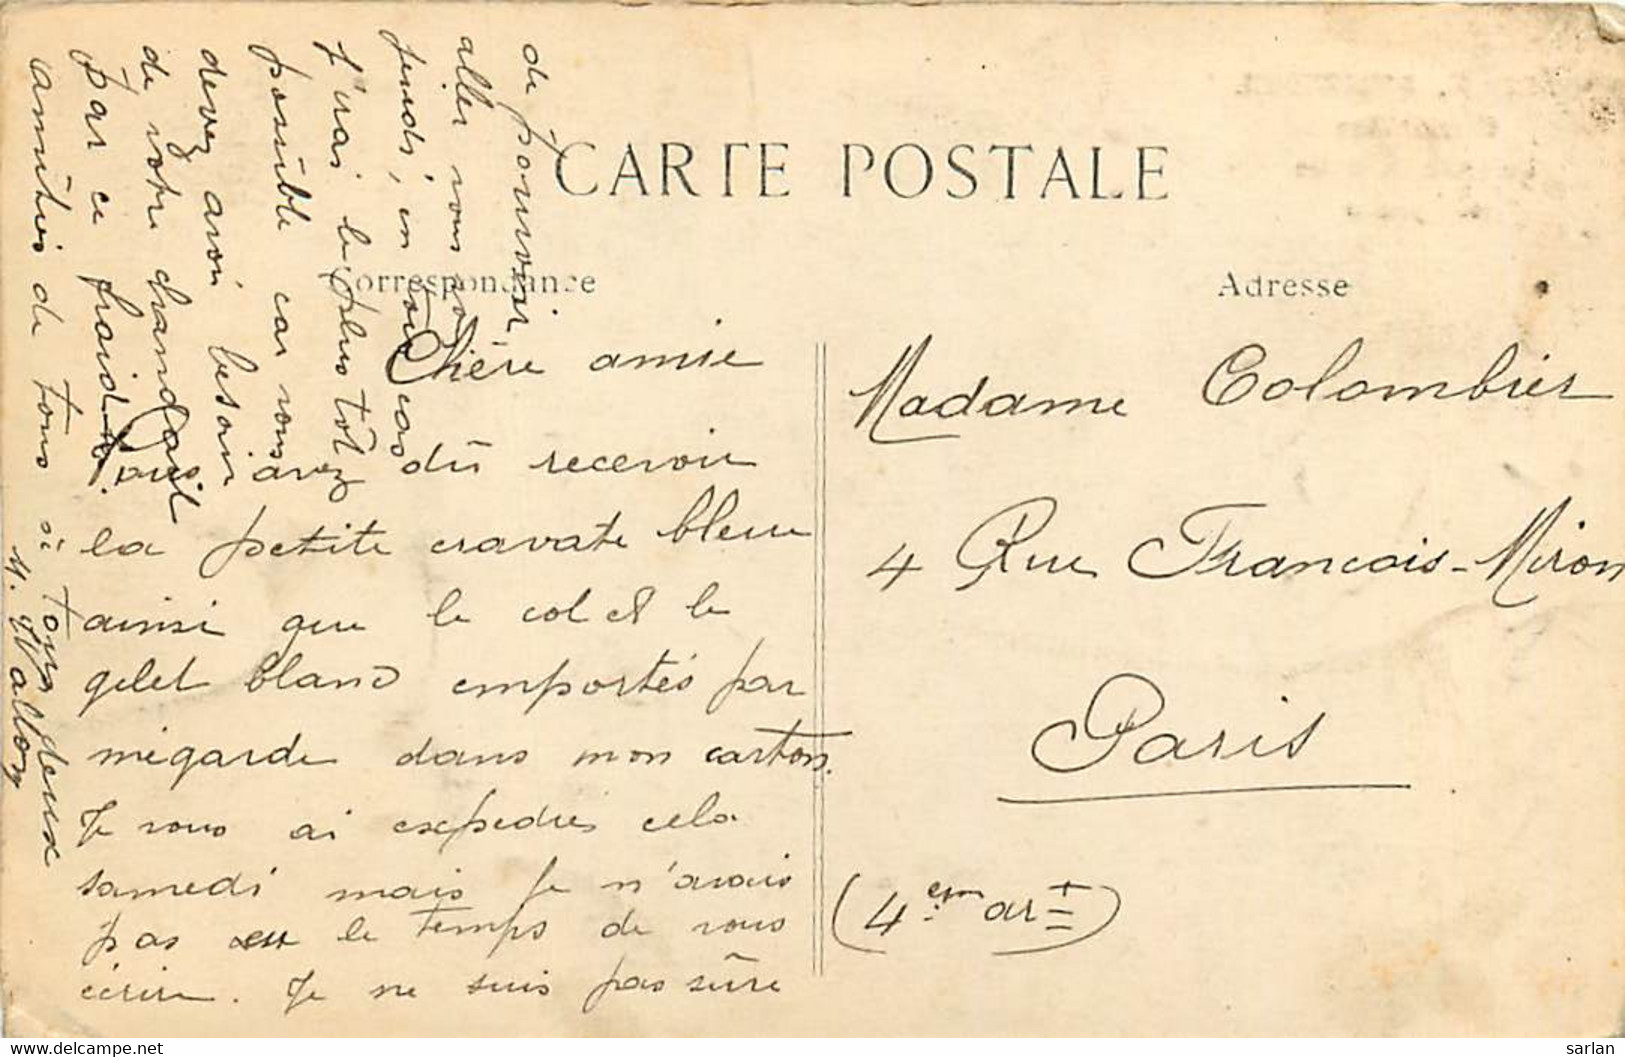 CARTE POSTALE
Correspondance
Adresse
Chère amie
Vous avez dû recevoir
la petite cravate bleue
ainsi que le col et le
gilet blanc emportés par
mégarde dans mon carton.
Je vous ai expediés cela
samedi mais je n'avais
pas eu le temps de vous
écrire. Je ne suis pas sûre
de pouvoir
aller vous voir
jeudi, en tous cas
j'irai le plus tôt
possible car vous
devez avoir besoin
de votre chandail
par ce froid.
Amitiés de tous à tous deux
Madame Colombier
4 Rue François-Miron
Paris
(4em art)
sarlan